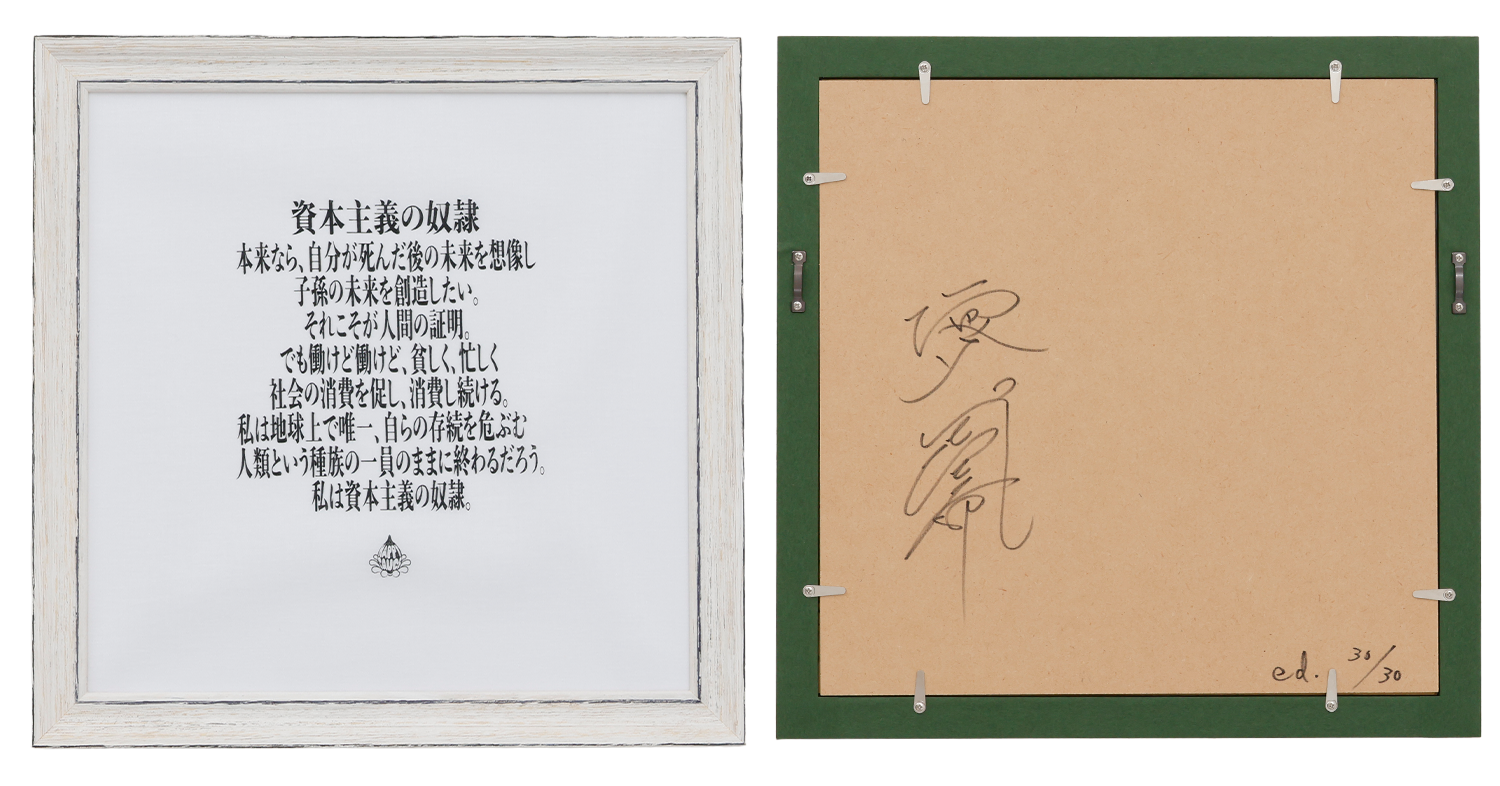 資本主義の奴隷
本来なら、自分が死んだ後の未来を想像し
子孫の未来を創造したい。
それこそが人間の証明。
でも働けど働けど、貧しく、忙しく
社会の消費を促し、消費し続ける。
私は地球上で唯一、自らの存続を危ぶむ
人類という種族の一員のままに終わるだろう。
私は資本主義の奴隷。
ed. 30/30